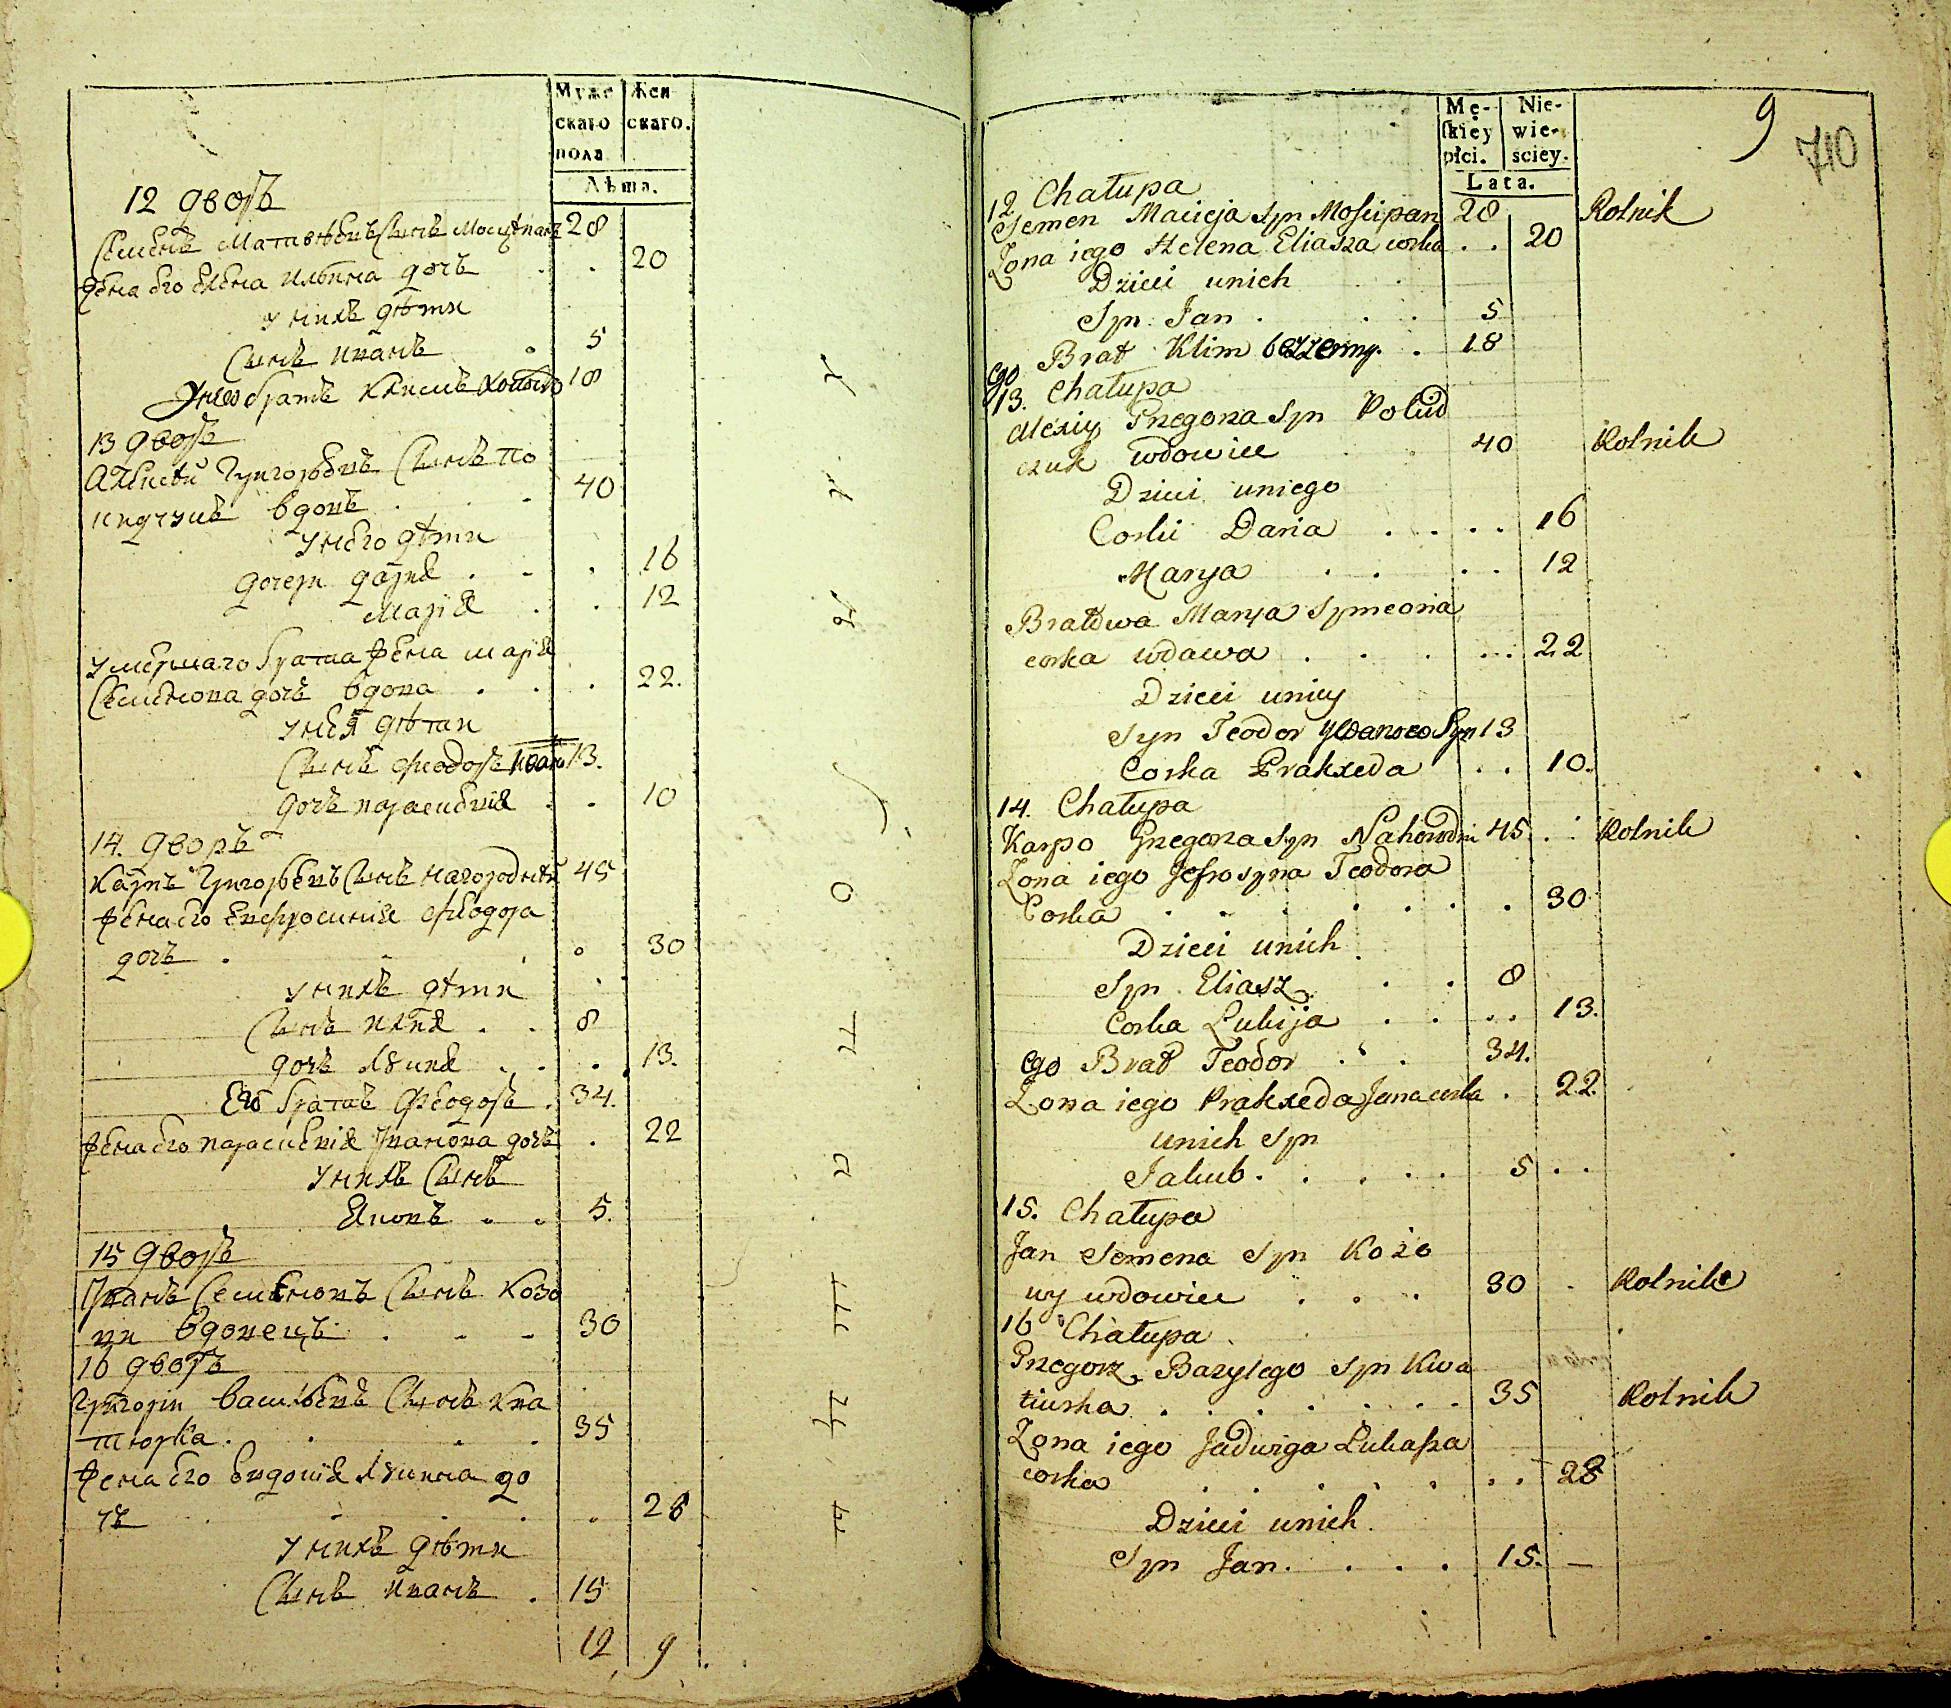 Муже
скаго
пола
Жен
скаго.
Лѣта.
12 дворъ
Семенъ Матвѣевъ Сынъ Мосцѣпанъ 28
жена его елена ильина дочъ . . 20
у нихъ дѣти
Сынъ иванъ . 5
У него братъ климъ холосто 18
13 дворъ
Алексѣй Григорьевъ Сынъ по
вдовъ . . 40
у него дѣти
дочери дарія . . . 16
Марія . . 12
умершаго брата жена марія
Семенова дочъ вдова . . . 22.
у нея дѣти
Сынъ феодоръ ивано 13.
дочъ параскевія . . 10
14. дворъ
карпъ Григорьевъ Сынъ нагородній 45
жена его евфросинія феодора
дочъ . . . 30
у нихъ дѣти
Сынъ илія . . 8
дочъ лукія . . . 13.
Его братъ Феодоръ . 34.
жена его параскевія Иванова дочъ . 22
у нихъ Сынъ
Яковъ . . 5.
15 дворъ
Иванъ Семеновъ Сынъ козо
вдовецъ . . . 30
16 дворъ
Григорій васильевъ Сынъ ква
тюрка . . . . 35
жена его евдокія лукина до
чъ . . . . . 28
у нихъ дѣти
Сынъ иванъ . 15
12 9
Mę-
skiey
płci.
Nie-
wie-
sciey.
Lata.
9
710
12. Chałupa
Semen Macieja Syn Mościpan 28 Rolnik
Zona iego Helena Eliasza corka . . 20
Dzieci unich
Syn Jan . . . 5
ego Brat Klim bezzenny. . 18
13. Chałupa
Alexiy Grzegorza Syn Polud
czuk wdowiec . . 40 Rolnik
Dzieci uniego
Corki Daria . . . . 16
Marya . . . . 12
Bratowa Marya Symeona
corka wdawa . . . . . . 22
Dzieci uniey
Syn Teodor Syn 13
Corka Prakxeda . . 10.
14. Chałupa
Karpo Grzegorza Syn 45. . Rolnik
Zona iego Jefrosyna Teodora
Corka . . . . . . . 30
Dzieci unich
Syn Eliasz . . . 8
Corka Lukija . . . . 13.
ego Brat Teodor . . . 34.
Zona iego Prakxeda Jana corka . . 22.
unich Syn
Jakub . . . . . 5 . .
15. Chałupa
Jan Semena Syn Kozo
wy wdowiec . . . 30 . Rolnik
16 Chałupa .
Grzegorz Bazylego Syn Kwa
tiurka . . . . . . . 35 Rolnik
Zona iego Jadwiga Łukasza
corka . . . . . . 28
Dzieci unich.
Syn Jan . . . . 15. —